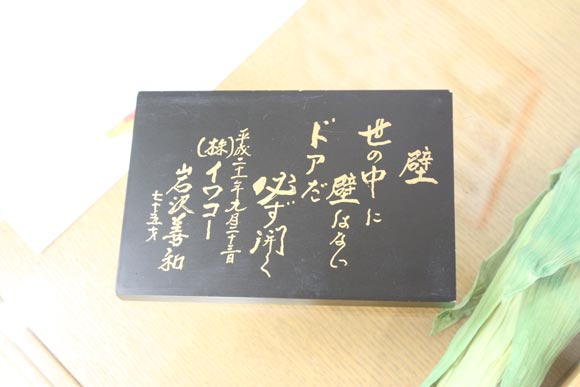 壁
世の中に
壁はない
ドアだ
必ず開く
平成二十一年九月二十三日
(株)イワコー
岩沢善和
七十五才